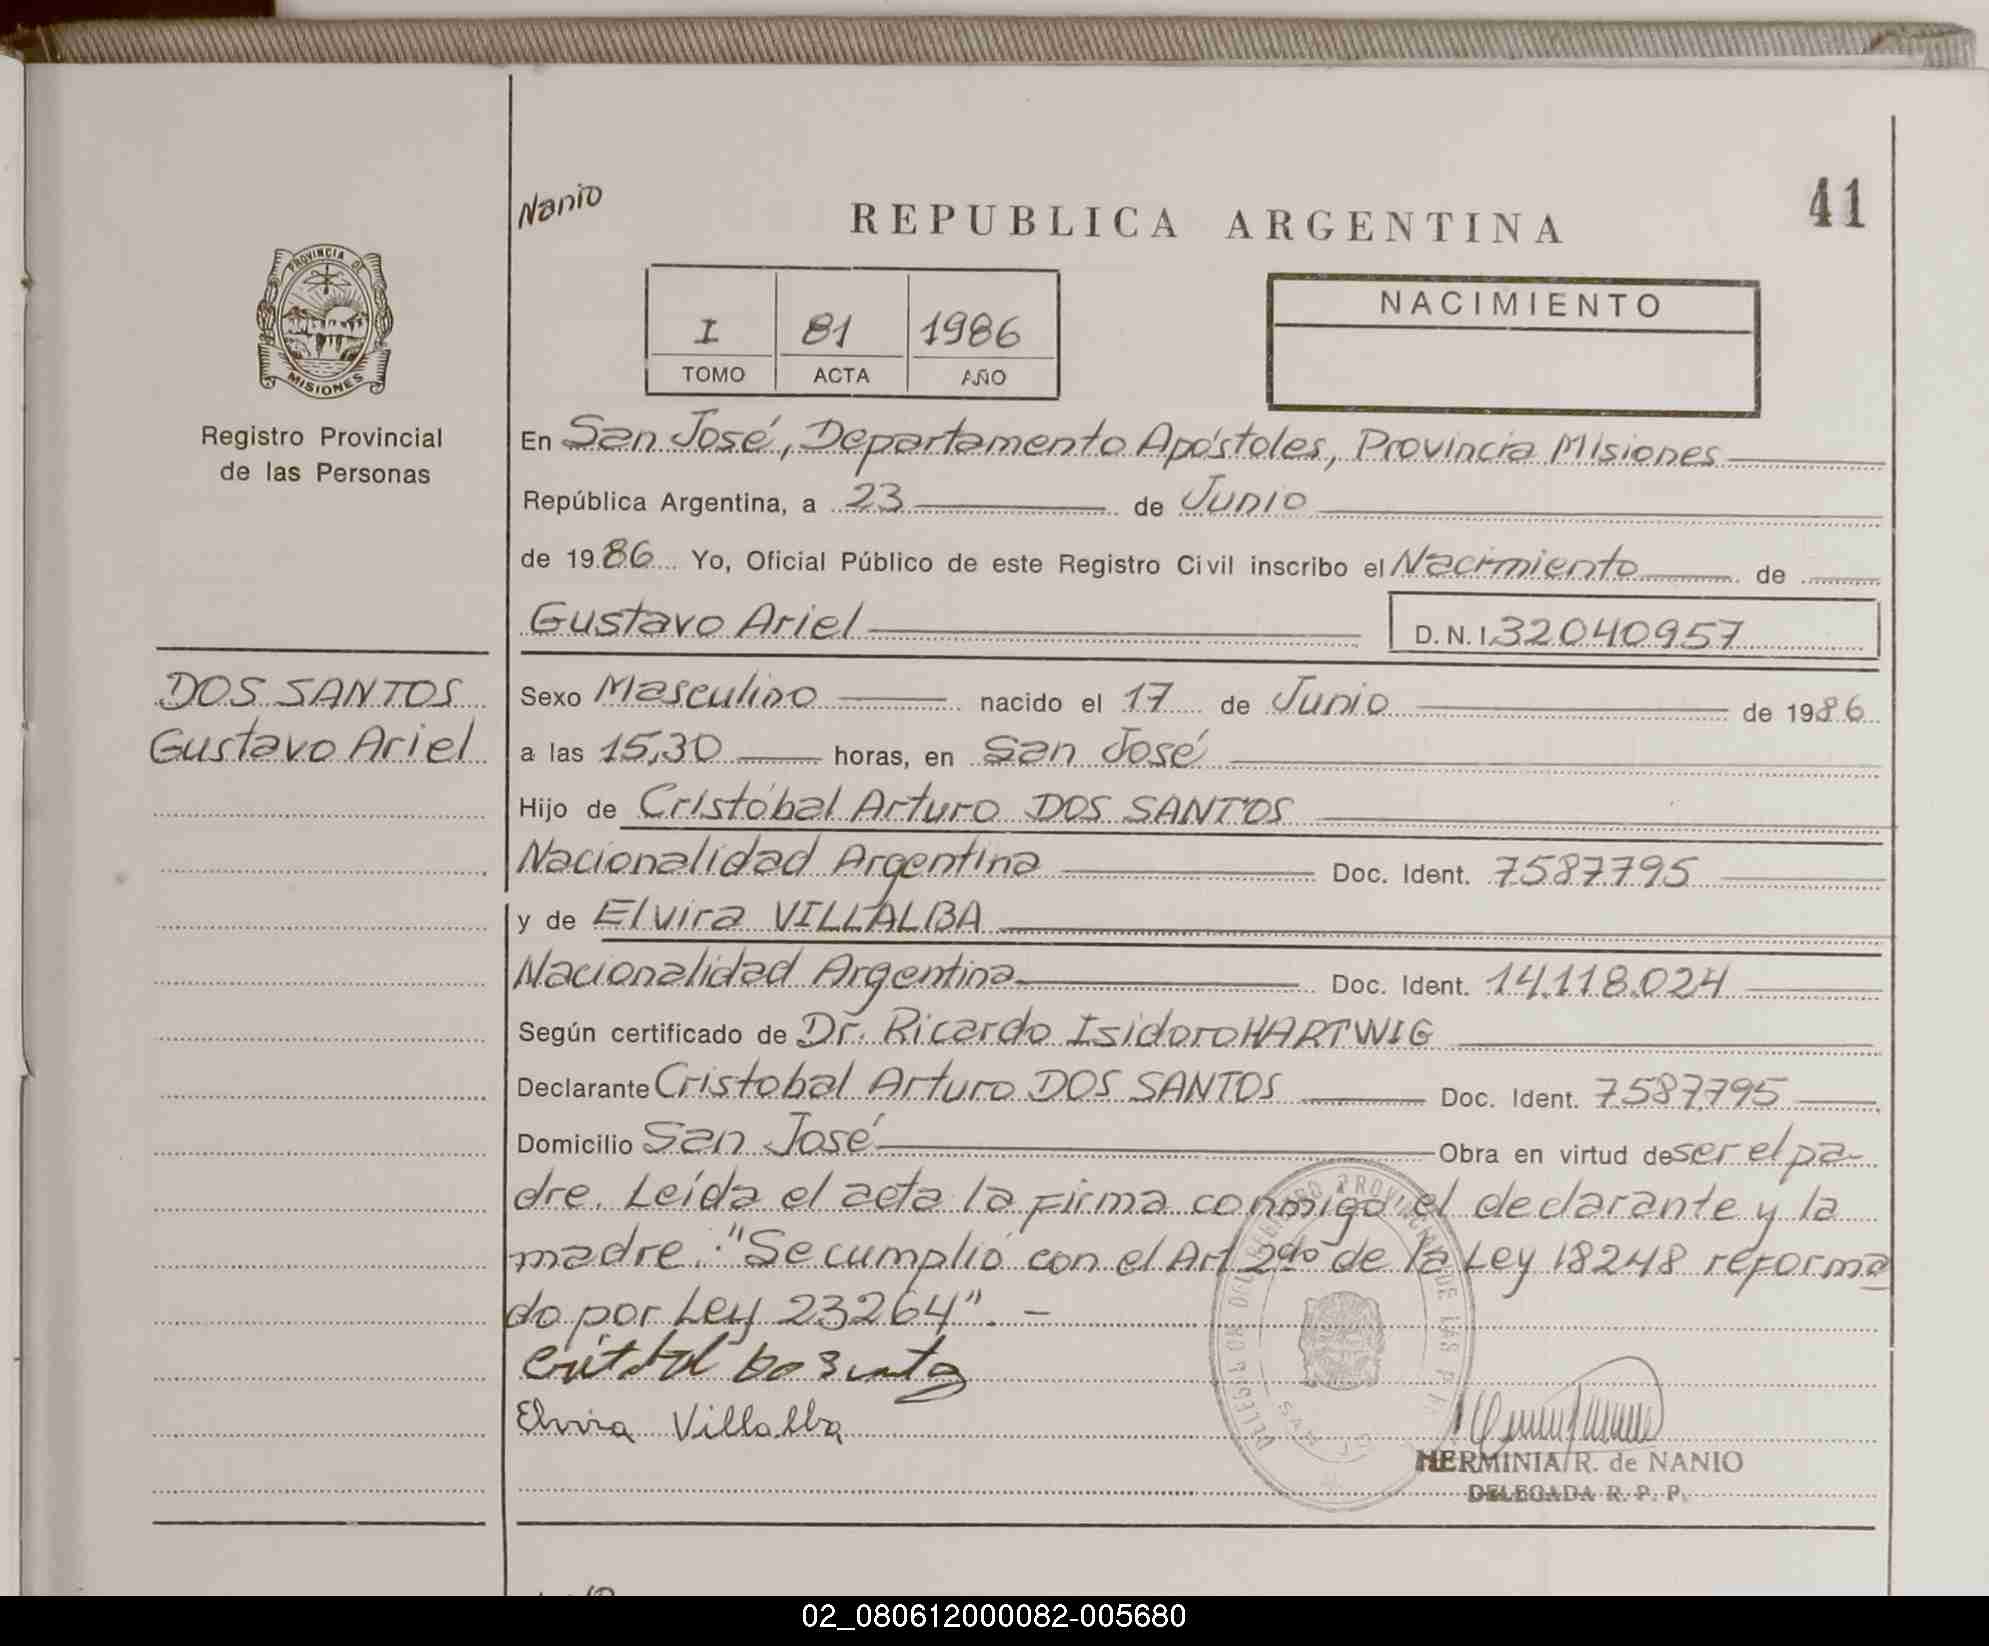 Nanio
REPUBLICA ARGENTINA
41
PROVINCIA DE
MISIONES
Registro Provincial
de las Personas
I 81 1986
TOMO ACTA AÑO
NACIMIENTO
En San José, Departamento Apóstoles, Provincia Misiones
República Argentina, a 23 de Junio
de 1986 Yo, Oficial Público de este Registro Civil inscribo el Nacimiento de
Gustavo Ariel D.N.I. 32040957
DOS SANTOS
Gustavo Ariel
Sexo Masculino nacido el 17 de Junio de 1986
a las 15,30 horas, en San José
Hijo de Cristóbal Arturo DOS SANTOS
Nacionalidad Argentina Doc. Ident. 7587795
y de Elvira VILLALBA
Nacionalidad Argentina Doc. Ident. 14.118.024
Según certificado de Dr. Ricardo Isidoro HARTWIG
Declarante Cristobal Arturo DOS SANTOS Doc. Ident. 7587795
Domicilio San José Obra en virtud de ser el pa-
dre. Leída el acta la firma conmigo el declarante y la
madre.: "Se cumplió con el Art 2do de la Ley 18248 reforma
do por Ley 23264". -
Elvira Villalba
HERMINIA R. de NANIO
DELEGADA R. P. P.
02_080612000082-005680